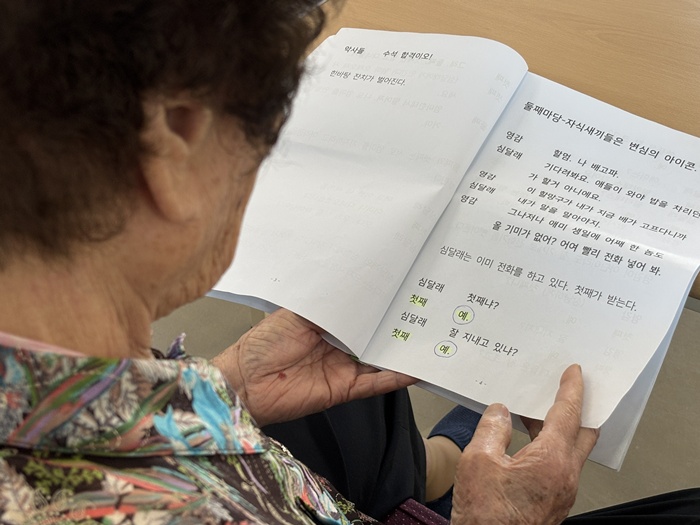 악사들 수석 합격이오!
한바탕 잔치가 벌어진다.
둘째마당-자식새끼들은 변심의 아이콘.
영감 할멈. 나 배고파.
심달래 기다려봐요. 얘들이 와야 밥을 차리던
가 할거 아니에요.
영감 이 할망구가 내가 지금 배가 고프다니까
심달래 내가 말을 말아야지.
영감 그나저나 애미 생일에 어째 한 놈도
올 기미가 없어? 어여 빨리 전화 넣어 봐.
심달래는 이미 전화를 하고 있다. 첫째가 받는다.
심달래 첫째냐?
첫째 예.
심달래 잘 지내고 있냐?
첫째 예.